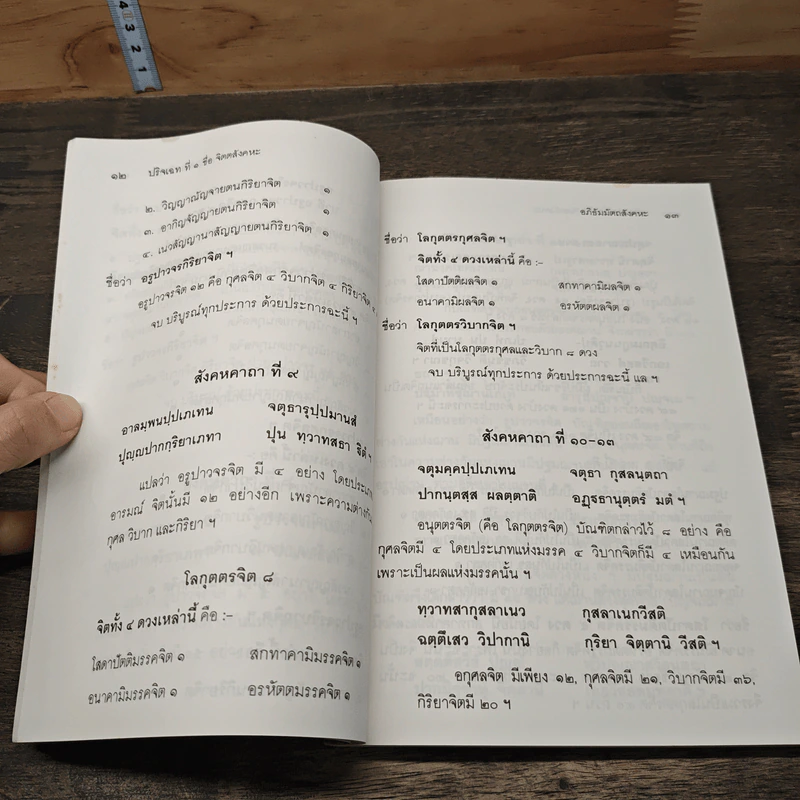 4 3 2 1
๑๒ ปริจเฉท ที่ ๑ ชื่อ จิตตสังคหะ
๒. วิญญาณัญจายตนกิริยาจิต ๑
๓. อากิญจัญญายตนกิริยาจิต ๑
๔. เนวสัญญานาสัญญายตนกิริยาจิต ๑
ชื่อว่า อรูปาวจรกิริยาจิต ฯ
อรูปาวจรจิต ๑๒ คือ กุศลจิต ๔ วิบากจิต ๔ กิริยาจิต ๔
จบ บริบูรณ์ทุกประการ ด้วยประการฉะนี้ ฯ
สังคหคาถา ที่ ๙
อาลมฺพนปฺปเภเทน จตุธารุปฺปมานสํ
ปุญฺญปากกฺริยาเภทา ปุน ทฺวาทสธา ฐิตํ ฯ
แปลว่า อรูปาวจรจิต มี ๔ อย่าง โดยประเภท
อารมณ์ จิตนั้นมี ๑๒ อย่างอีก เพราะความต่างกัน
กุศล วิบาก และกิริยา ฯ
โลกุตตรจิต ๘
จิตทั้ง ๔ ดวงเหล่านี้ คือ :-
โสดาปัตติมรรคจิต ๑ สกทาคามิมรรคจิต ๑
อนาคามิมรรคจิต ๑ อรหัตตมรรคจิต ๑
อภิธัมมัตถสังคหะ ๑๓
ชื่อว่า โลกุตตรกุศลจิต ฯ
จิตทั้ง ๔ ดวงเหล่านี้ คือ :-
โสดาปัตติผลจิต ๑ สกทาคามิผลจิต ๑
อนาคามิผลจิต ๑ อรหัตตผลจิต ๑
ชื่อว่า โลกุตตรวิบากจิต ฯ
จิตที่เป็นโลกุตตรกุศลและวิบาก ๘ ดวง
จบ บริบูรณ์ทุกประการ ด้วยประการฉะนี้ แล ฯ
สังคหคาถา ที่ ๑๐-๑๓
จตุมคฺคปฺปเภเทน จตุธา กุสลนฺตถา
ปากนฺตสฺส ผลตฺตาติ อฏฺฐธานุตฺตรํ มตํ ฯ
อนุตตรจิต (คือ โลกุตตรจิต) บัณฑิตกล่าวไว้ ๘ อย่าง คือ
กุศลจิตมี ๔ โดยประเภทแห่งมรรค ๔ วิบากจิตก็มี ๔ เหมือนกัน
เพราะเป็นผลแห่งมรรคนั้น ฯ
ทฺวาทสากุสลาเนว กุสลาเนกวีสติ
ฉตฺตึเสว วิปากานิ กฺริยา จิตฺตานิ วีสติ ฯ
อกุศลจิต มีเพียง ๑๒, กุศลจิตมี ๒๑, วิบากจิตมี ๓๖,
กิริยาจิตมี ๒๐ ฯ